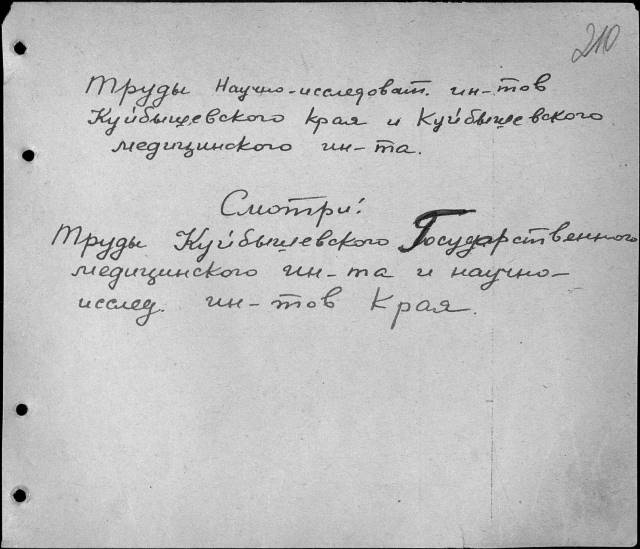 210
Труды Научно-исследоват. ин-тов
Куйбышевского края и Куйбышевского
медицинского ин-та.
Смотри:
Труды Куйбышевского Государственного
медицинского ин-та и научно-
исслед. ин-тов Края.